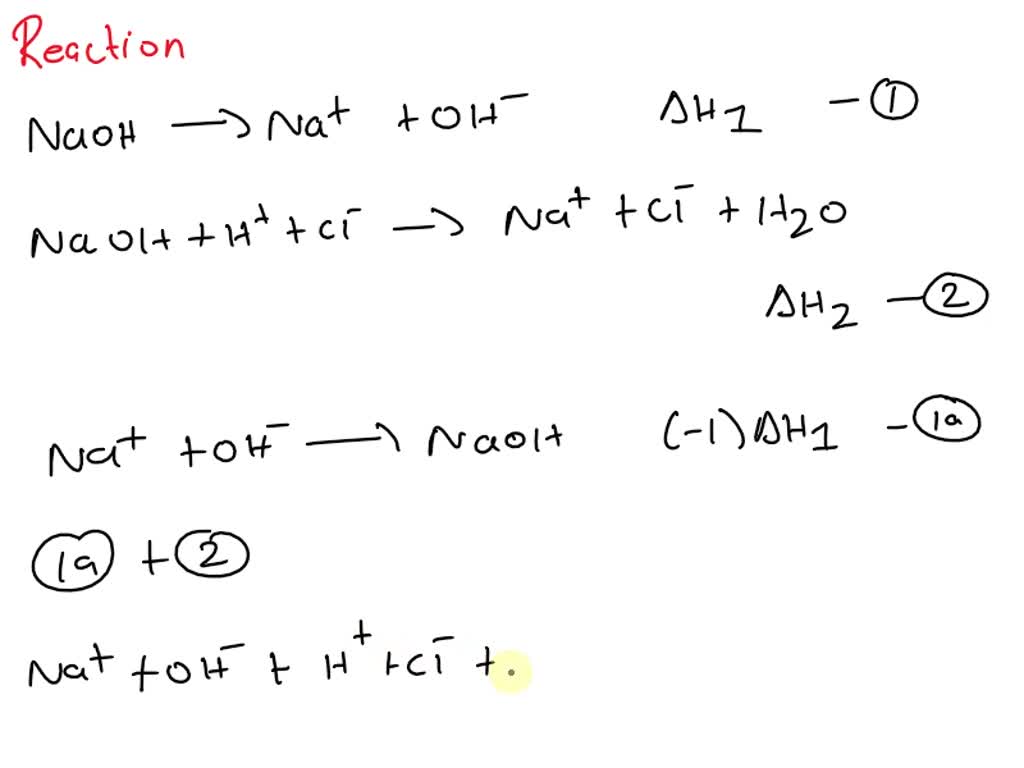 Reaction
NaOH → Na⁺ + OH⁻ ΔH1 – ①
NaOH + H⁺ + Cl⁻ → Na⁺ + Cl⁻ + H2O
ΔH2 – ②
Na⁺ + OH⁻ → NaOH (-1)ΔH1 – (1a)
(1a) + ②
Na⁺ + OH⁻ + H⁺ + Cl⁻ + .